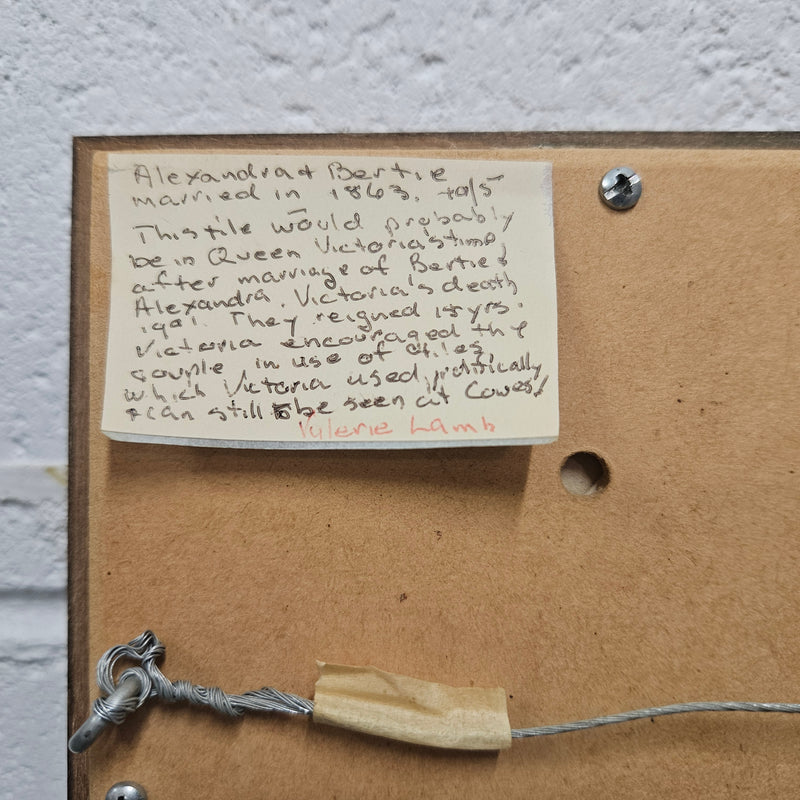 Alexandra & Bertie
married in 1863.
This tile would probably
be in Queen Victoria's time
after marriage of Bertie &
Alexandra. Victoria's death
1901. They reigned yrs.
Victoria encouraged the
couple in use of tiles
which Victoria used prolifically
& can still be seen at Cowes!
Valerie Lamb